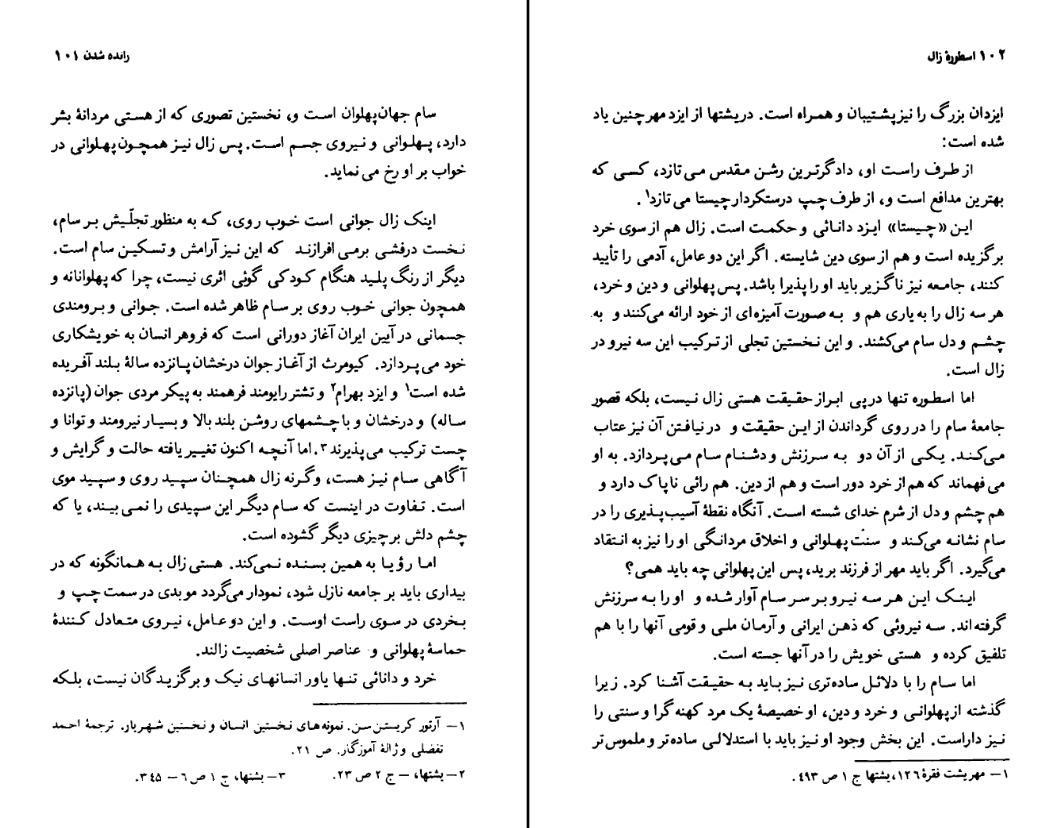 رانده شدن ۱۰۱
سام جهان‌پهلوان است و، نخستین تصوری که از هستی مردانهٔ بشر
دارد، پهلوانی و نیروی جسم است. پس زال نیز همچون پهلوانی در
خواب بر او رخ می نماید.
اینک زال جوانی است خوب روی، که به منظور تجلّیش بر سام،
نخست درفشی برمی افرازند که این نیز آرامش و تسکین سام است.
دیگر از رنگ پلید هنگام کودکی گوئی اثری نیست، چرا که پهلوانانه و
همچون جوانی خوب روی بر سام ظاهر شده است. جوانی و برومندی
جسمانی در آیین ایران آغاز دورانی است که فروهر انسان به خویشکاری
خود می‌پردازد. کیومرث از آغاز جوان درخشان پانزده سالهٔ بلند آفریده
شده است۱ و ایزد بهرام۲ و تشتر رایومند فرهمند به پیکر مردی جوان (پانزده
ساله) و درخشان و با چشمهای روشن بلند بالا و بسیار نیرومند و توانا و
چست ترکیب می‌پذیرند۳. اما آنچه اکنون تغییر یافته حالت و گرایش و
آگاهی سام نیز هست، وگرنه زال همچنان سپید روی و سپید موی
است. تفاوت در اینست که سام دیگر این سپیدی را نمی‌بیند، یا که
چشم دلش بر چیزی دیگر گشوده است.
اما رؤیا به همین بسنده نمی‌کند. هستی زال به همانگونه که در
بیداری باید بر جامعه نازل شود، نمودار می‌گردد موبدی در سمت چپ و
بخردی در سوی راست اوست. و این دو عامل، نیروی متعادل کنندهٔ
حماسهٔ پهلوانی و عناصر اصلی شخصیت زالند.
خرد و دانائی تنها یاور انسانهای نیک و برگزیدگان نیست، بلکه
۱— آرتور کریستن سن. نمونه‌های نخستین انسان و نخستین شهریار. ترجمهٔ احمد
تفضلی و ژالهٔ آموزگار. ص ۲۱.
۲— یشتها، — ج ۲ ص ۲۳. ۳— یشتها، ج ۱ ص ۶ — ۳۴۵.
۱۰۲ اسطورهٔ زال
ایزدان بزرگ را نیز پشتیبان و همراه است. در یشتها از ایزد مهر چنین یاد
شده است:
از طرف راست او، دادگرترین رشن مقدس می تازد، کسی که
بهترین مدافع است و، از طرف چپ درستکردار چیستا می تازد۱.
این «چیستا» ایزد دانائی و حکمت است. زال هم از سوی خرد
برگزیده است و هم از سوی دین شایسته. اگر این دو عامل، آدمی را تأیید
کنند، جامعه نیز ناگزیر باید او را پذیرا باشد. پس پهلوانی و دین و خرد،
هر سه زال را به یاری هم و به صورت آمیزه‌ای از خود ارائه می‌کنند و به
چشم و دل سام می‌کشند. و این نخستین تجلی از ترکیب این سه نیرو در
زال است.
اما اسطوره تنها در پی ابراز حقیقت هستی زال نیست، بلکه قصور
جامعهٔ سام را در روی گرداندن از این حقیقت و در نیافتن آن نیز عتاب
می‌کند. یکی از آن دو به سرزنش و دشنام سام می‌پردازد. به او
می فهماند که هم از خرد دور است و هم از دین. هم رائی ناپاک دارد و
هم چشم و دل از شرم خدای شسته است. آنگاه نقطهٔ آسیب‌پذیری را در
سام نشانه می‌کند و سنّت پهلوانی و اخلاق مردانگی او را نیز به انتقاد
می‌گیرد. اگر باید مهر از فرزند برید، پس این پهلوانی چه باید همی؟
اینک این هر سه نیرو بر سر سام آوار شده و او را به سرزنش
گرفته‌اند. سه نیروئی که ذهن ایرانی و آرمان ملی و قومی آنها را با هم
تلفیق کرده و هستی خویش را در آنها جسته است.
اما سام را با دلائل ساده‌تری نیز باید به حقیقت آشنا کرد. زیرا
گذشته از پهلوانی و خرد و دین، او خصیصهٔ یک مرد کهنه گرا و سنتی را
نیز داراست. این بخش وجود او نیز باید با استدلالی ساده‌تر و ملموس‌تر
۱— مهریشت فقرهٔ ۱۲۶، یشتها ج ۱ ص ۴۹۳.